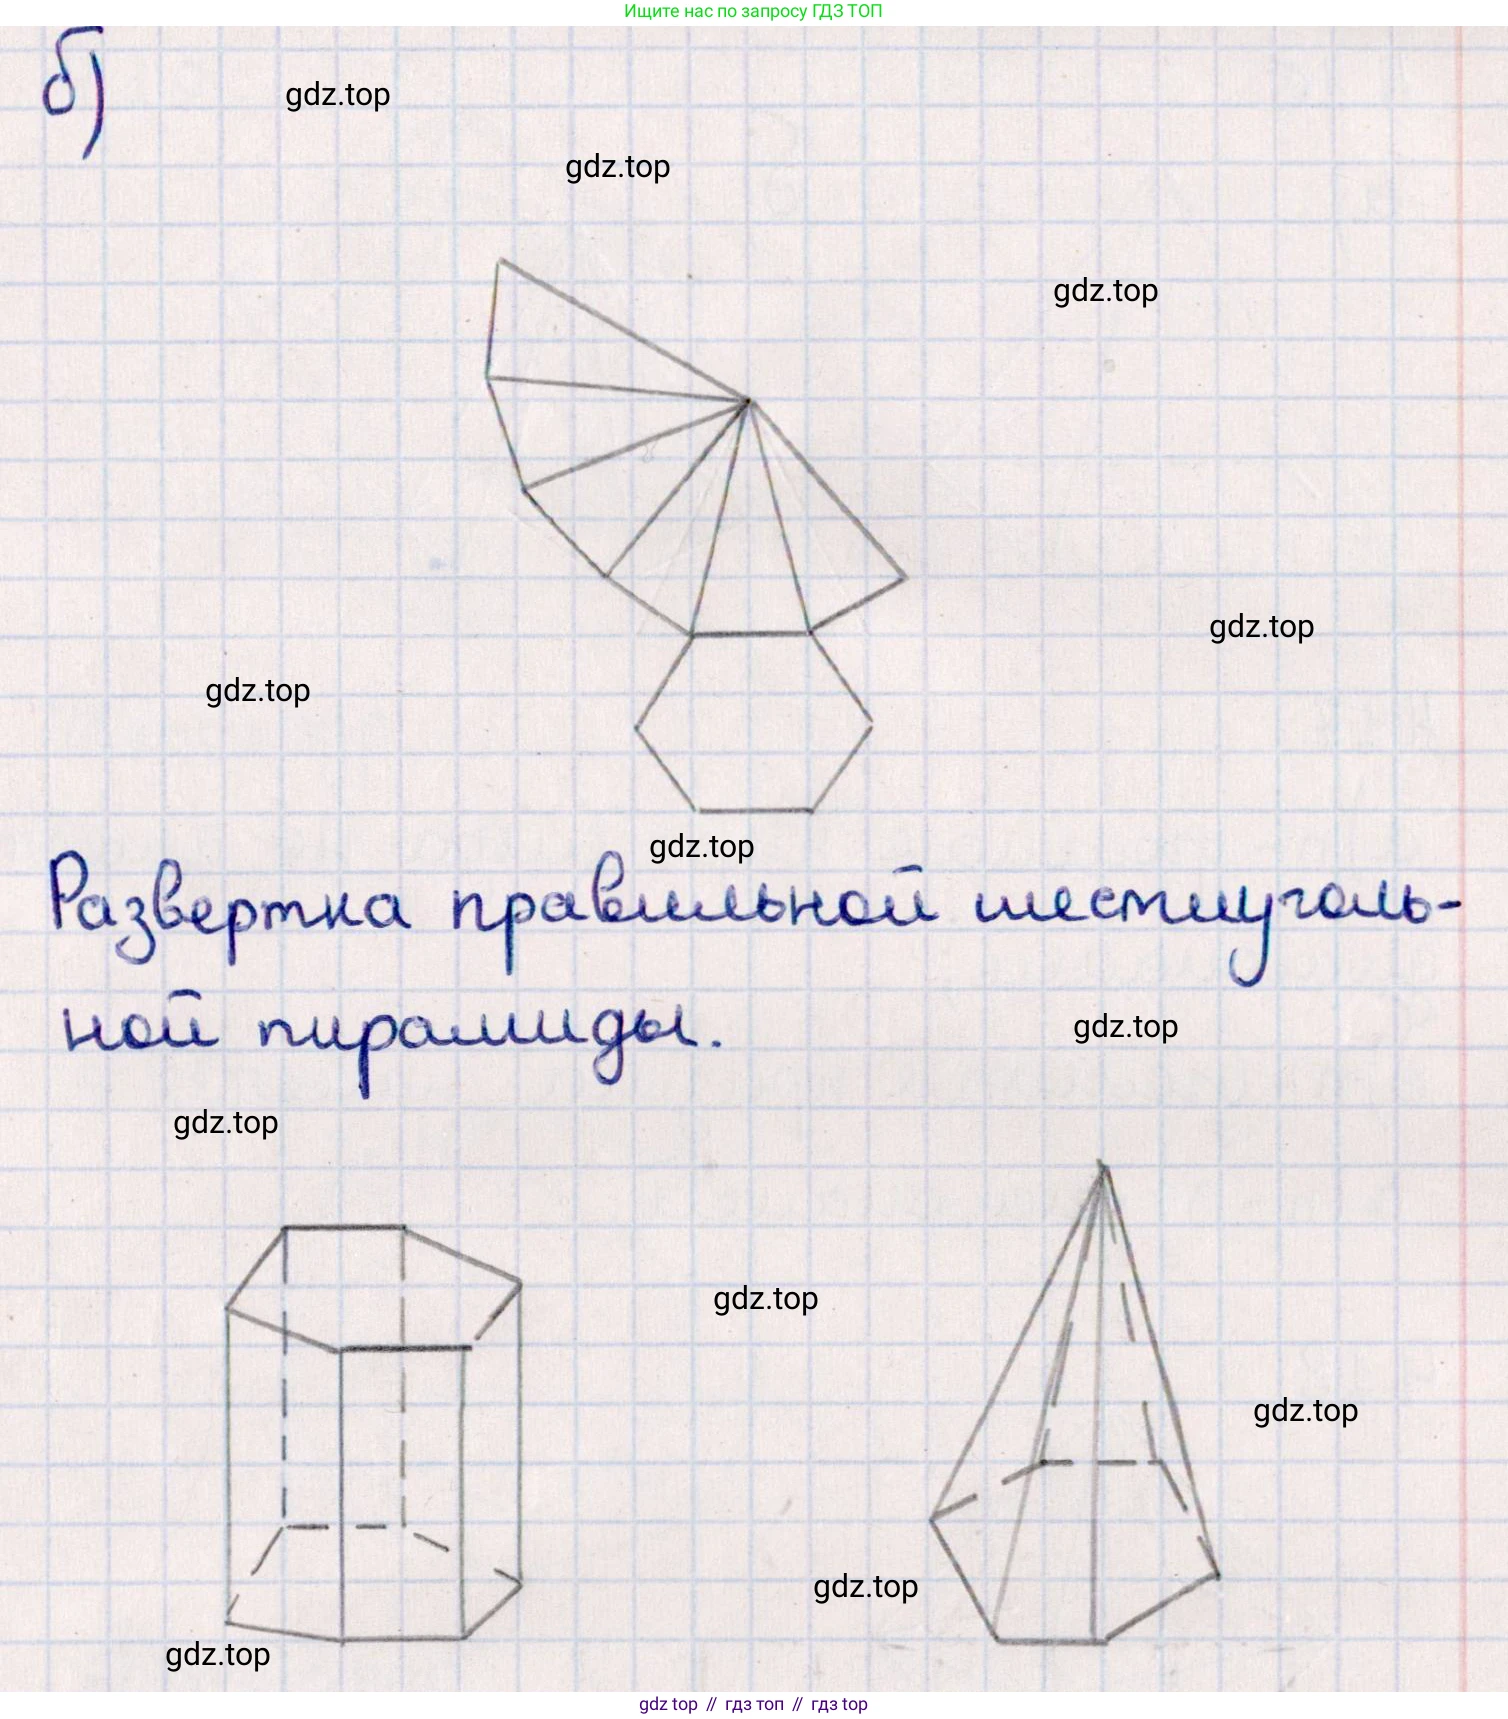 Ищите нас по запросу ГДЗ ТОП
б)
gdz.top
gdz.top
gdz.top
gdz.top
gdz.top
gdz.top
Развертка правильной шестиуголь-
ной пирамиды.
gdz.top
gdz.top
gdz.top
gdz.top
gdz.top
gdz.top
gdz top // гдз топ // гдз top